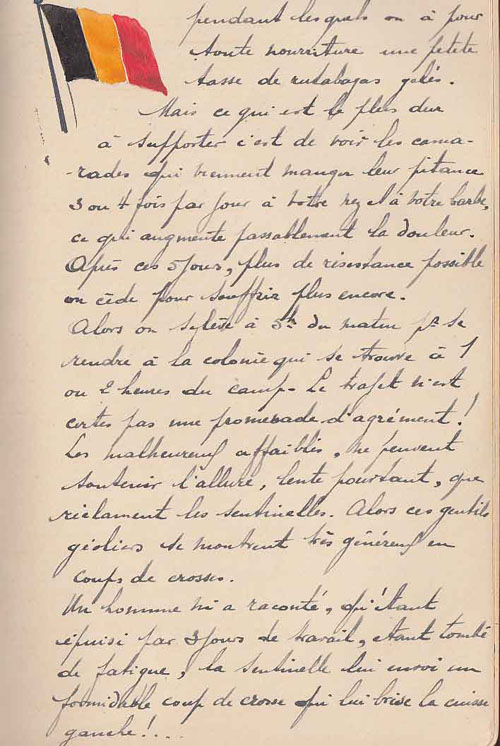 pendant lesquels on à pour
toute nourriture une petite
tasse de rutabagas gelés.
Mais ce qui est le plus dur
à supporter c'est de voir les cama-
-rades qui viennent manger leur pitance
3 ou 4 fois par jour à votre nez et à votre barbe,
ce qui augmente passablement la douleur.
Après ces 5 jours, plus de résistance possible
on cède pour souffrir plus encore.
Alors on se lève à 5h du matin pr se
rendre à la colonie qui se trouve à 1
ou 2 heures du camp. Le trajet n'est
certes pas une promenade d'agrément!
Les malheureux affaiblis, ne peuvent
soutenir l'allure, lente pourtant, que
réclament les sentinelles. Alors ces gentils
géoliers se montrent très généreux en
coups de crosses.
Un homme m'a raconté, qu'étant
épuisé par 3 jours de travail, étant tombé
de fatigue, la sentinelle lui envoi un
formidable coup de crosse qui lui brise la cuisse
gauche!...